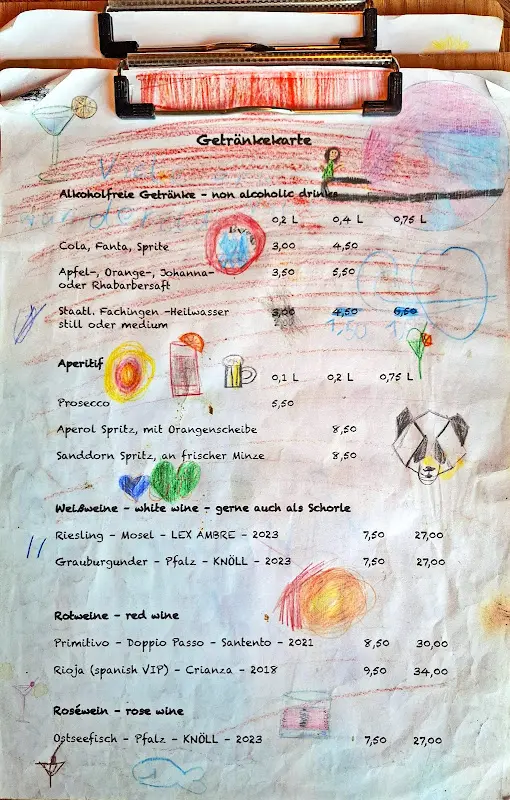 Getränkekarte
Viel
Alkoholfreie Getränke - non alcoholic drinks
0,2 L 0,4 L 0,75 L
Cola, Fanta, Sprite 3,00 4,50
Apfel-, Orange-, Johanna- 3,50 5,50
oder Rhabarbersaft
Staatl. Fachingen -Heilwasser 3,00 4,50 6,50
still oder medium
Aperitif
0,1 L 0,2 L 0,75 L
Prosecco 5,50
Aperol Spritz, mit Orangenscheibe 8,50
Sanddorn Spritz, an frischer Minze 8,50
Weißweine - white wine - gerne auch als Schorle
Riesling - Mosel - LEX AMBRE - 2023 7,50 27,00
Grauburgunder - Pfalz - KNÖLL - 2023 7,50 27,00
Rotweine - red wine
Primitivo - Doppio Passo - Santento - 2021 8,50 30,00
Rioja (spanish VIP) - Crianza - 2018 9,50 34,00
Roséwein - rose wine
Ostseefisch - Pfalz - KNÖLL - 2023 7,50 27,00